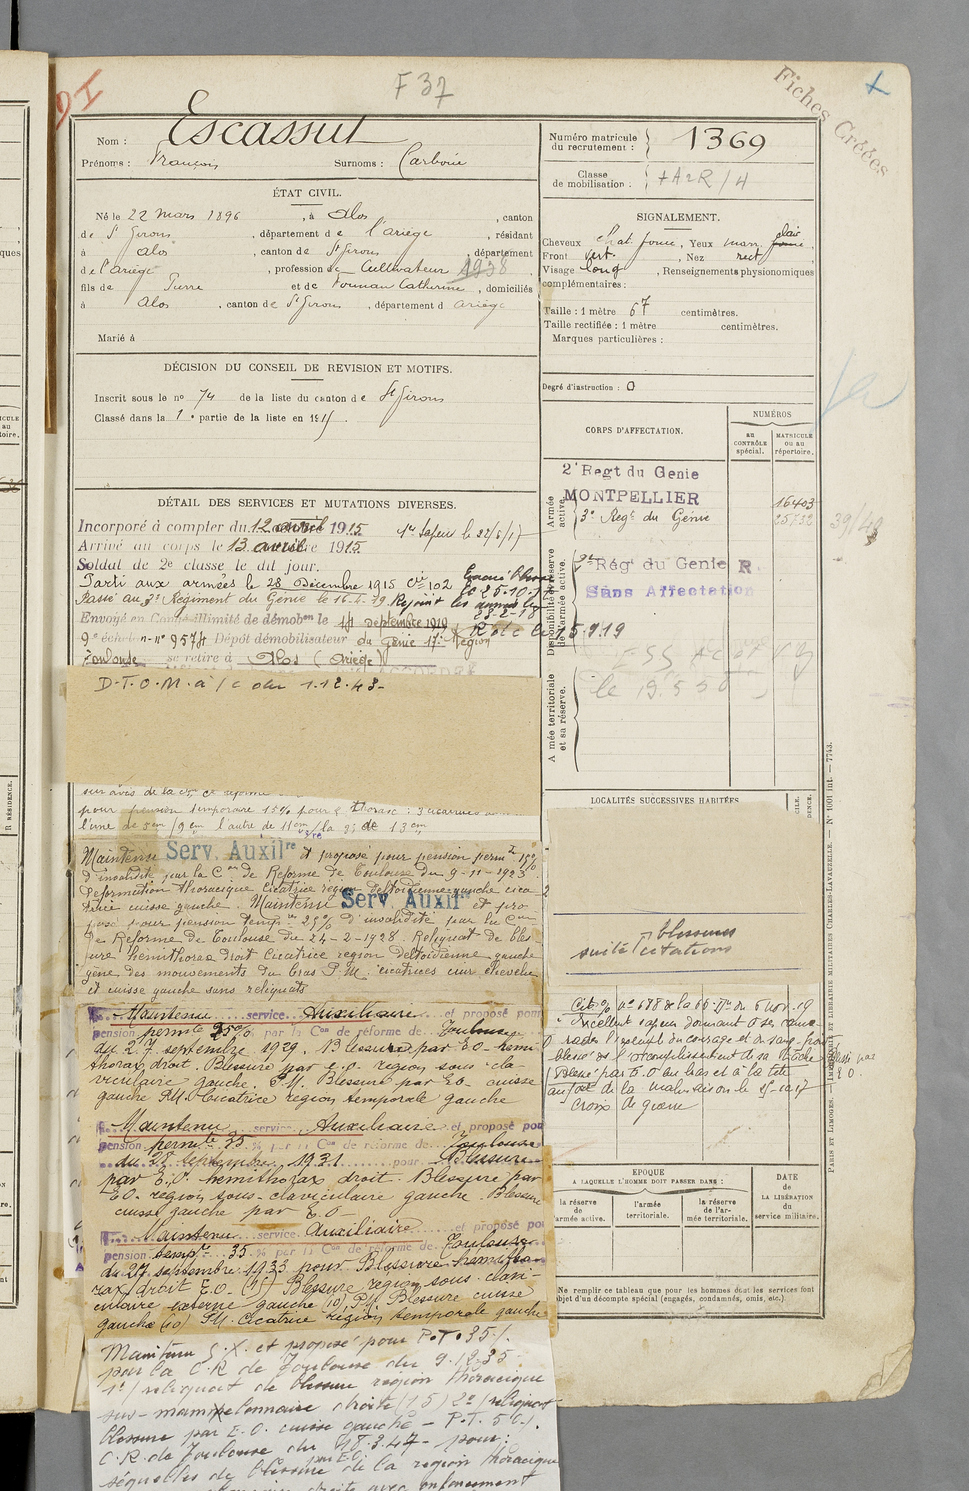 D I
F 37
Fiches Créées
Nom : Escassut
Prénoms : François Surnoms : Carboué
Numéro matricule du recrutement : 1369
Classe de mobilisation :
ÉTAT CIVIL.
Né le 22 mars 1896, à Alos, canton
de St Girons, département de l'ariège, résidant
à Alos, canton de St Girons, département
de l'ariège, profession de Cultivateur 1938
fils de Pierre et de Catherine, domiciliés
à Alos, canton de St Girons, département d ariège
Marié à
SIGNALEMENT.
Cheveux chat. , Yeux mar. clair
Front vert. , Nez rect
Visage long , Renseignements physionomiques
complémentaires :
Taille : 1 mètre 67 centimètres.
Taille rectifiée : 1 mètre centimètres.
Marques particulières :
Degré d'instruction : 0
DÉCISION DU CONSEIL DE REVISION ET MOTIFS.
Inscrit sous le no 74 de la liste du canton de St Girons
Classé dans la 1e partie de la liste en 1915.
CORPS D'AFFECTATION.
NUMÉROS
au CONTRÔLE spécial.
MATRICULE ou au répertoire.
Armée active.
2e Regt du Genie
MONTPELLIER
16403
3e Regt du Génie
Disponibilité et réserve de l'armée active.
2e Rég' du Genie R
Sans Affectation
Armée territoriale et sa réserve.
le 19.5.50
39/40
DÉTAIL DES SERVICES ET MUTATIONS DIVERSES.
Incorporé à compter du 12 avril 1915 1er Sapeur le 22/6/17
Arrivé au corps le 13 avril 1915.
Soldat de 2e classe le dit jour.
Parti aux armées le 28 Décembre 1915 Cie 102 Evacué blessé le 25.10.17
Passé au 3e Régiment du Génie le 16.4.19 Rejoint les armées le 23-2-18
Envoyé en Congé illimité de démobon le 14 septembre 1919
9e échelon no 9574 Dépôt démobilisateur du Génie 17e Région
Toulouse se retire à Alos (Ariège)
D.T.O.M. à /c du 1.12.43-
pour pension temporaire 15% pour : thorax : 3 cicatrices
l'une de 5cm / 9cm l'autre de 11cm / la 3e de 13cm
Maintenu Serv. Auxilre et proposé pour pension permte 15%
d'invalidité par la Con de Réforme de Toulouse du 9-11-1923
Déformation thoracique cicatrice région deltoïdienne gauche cica-
trice cuisse gauche. Maintenu Serv. Auxilre et pro-
posé pour pension tempre 25% d'invalidité par la Con
de Réforme de Toulouse du 24-2-1928. Reliquat de bles-
sure hémithorax droit cicatrice region deltoïdienne gauche
gêne des mouvements du bras P.M. : cicatrices cuir chevelu
et cuisse gauche sans reliquats
Maintenu service Auxiliaire et proposé pour
pension permte 25% par la Con de réforme de Toulouse
du 27 septembre 1929. Blessure par E.O. hémi-
thorax droit. Blessure par E.O. région sous-cla-
viculaire gauche. P.M. Blessure par E.O. cuisse
gauche P.M. Cicatrice région temporale gauche
Maintenu service Auxiliaire et proposé pour
pension permte 35% par la Con de réforme de Toulouse
du 28 septembre 1931 pour Blessure
par E.O. hémithorax droit. Blessure par
E.O. région sous-claviculaire gauche. Blessure
cuisse gauche par E.O.
Maintenu service Auxiliaire et proposé pour
pension tempre 35% par la Con de réforme de Toulouse
du 27 septembre 1933 pour Blessure hémitho-
rax droit E.O. (15) Blessure région sous-clavi-
culaire externe gauche (10) P.M. Blessure cuisse
gauche (10) P.M. Cicatrice région temporale gauche
Maintenu S.X. et proposé pour P.T. 35%.
par la C.R. de Toulouse du 9.12.35
1e/ reliquat de blessure région thoracique
sus-mammelonnaire droite (15) 2e/ reliquat
blessure par E.O. cuisse gauche - P.T. 5%.
C.R. de Toulouse du 17.3.47- pour :
séquelles de blessure par E.O. de la région thoracique
droite avec enfoncement
LOCALITÉS SUCCESSIVES HABITÉES
blessures
suite citations
Cité no 688 de la 65e Don du 5 nov. 17
Excellent sapeur donnant à ses cama-
rades l'exemple du courage et du sang-froid
blessé ds l'accomplissement de sa tâche
Blessé par E.O au bras et à la tête
au fort de la malmaison le 25-10-17
Croix de guerre
EPOQUE
A LAQUELLE L'HOMME DOIT PASSER DANS :
la réserve de l'armée active.
l'armée territoriale.
la réserve de l'armée territoriale.
DATE de LA LIBÉRATION du service militaire.
Ne remplir ce tableau que pour les hommes dont les services font
objet d'un décompte spécial (engagés, condamnés, omis, etc.)
PARIS ET LIMOGES. — IMPRIMERIE ET LIBRAIRIE MILITAIRES CHARLES-LAVAUZELLE. — No 1001 int. — 7743.